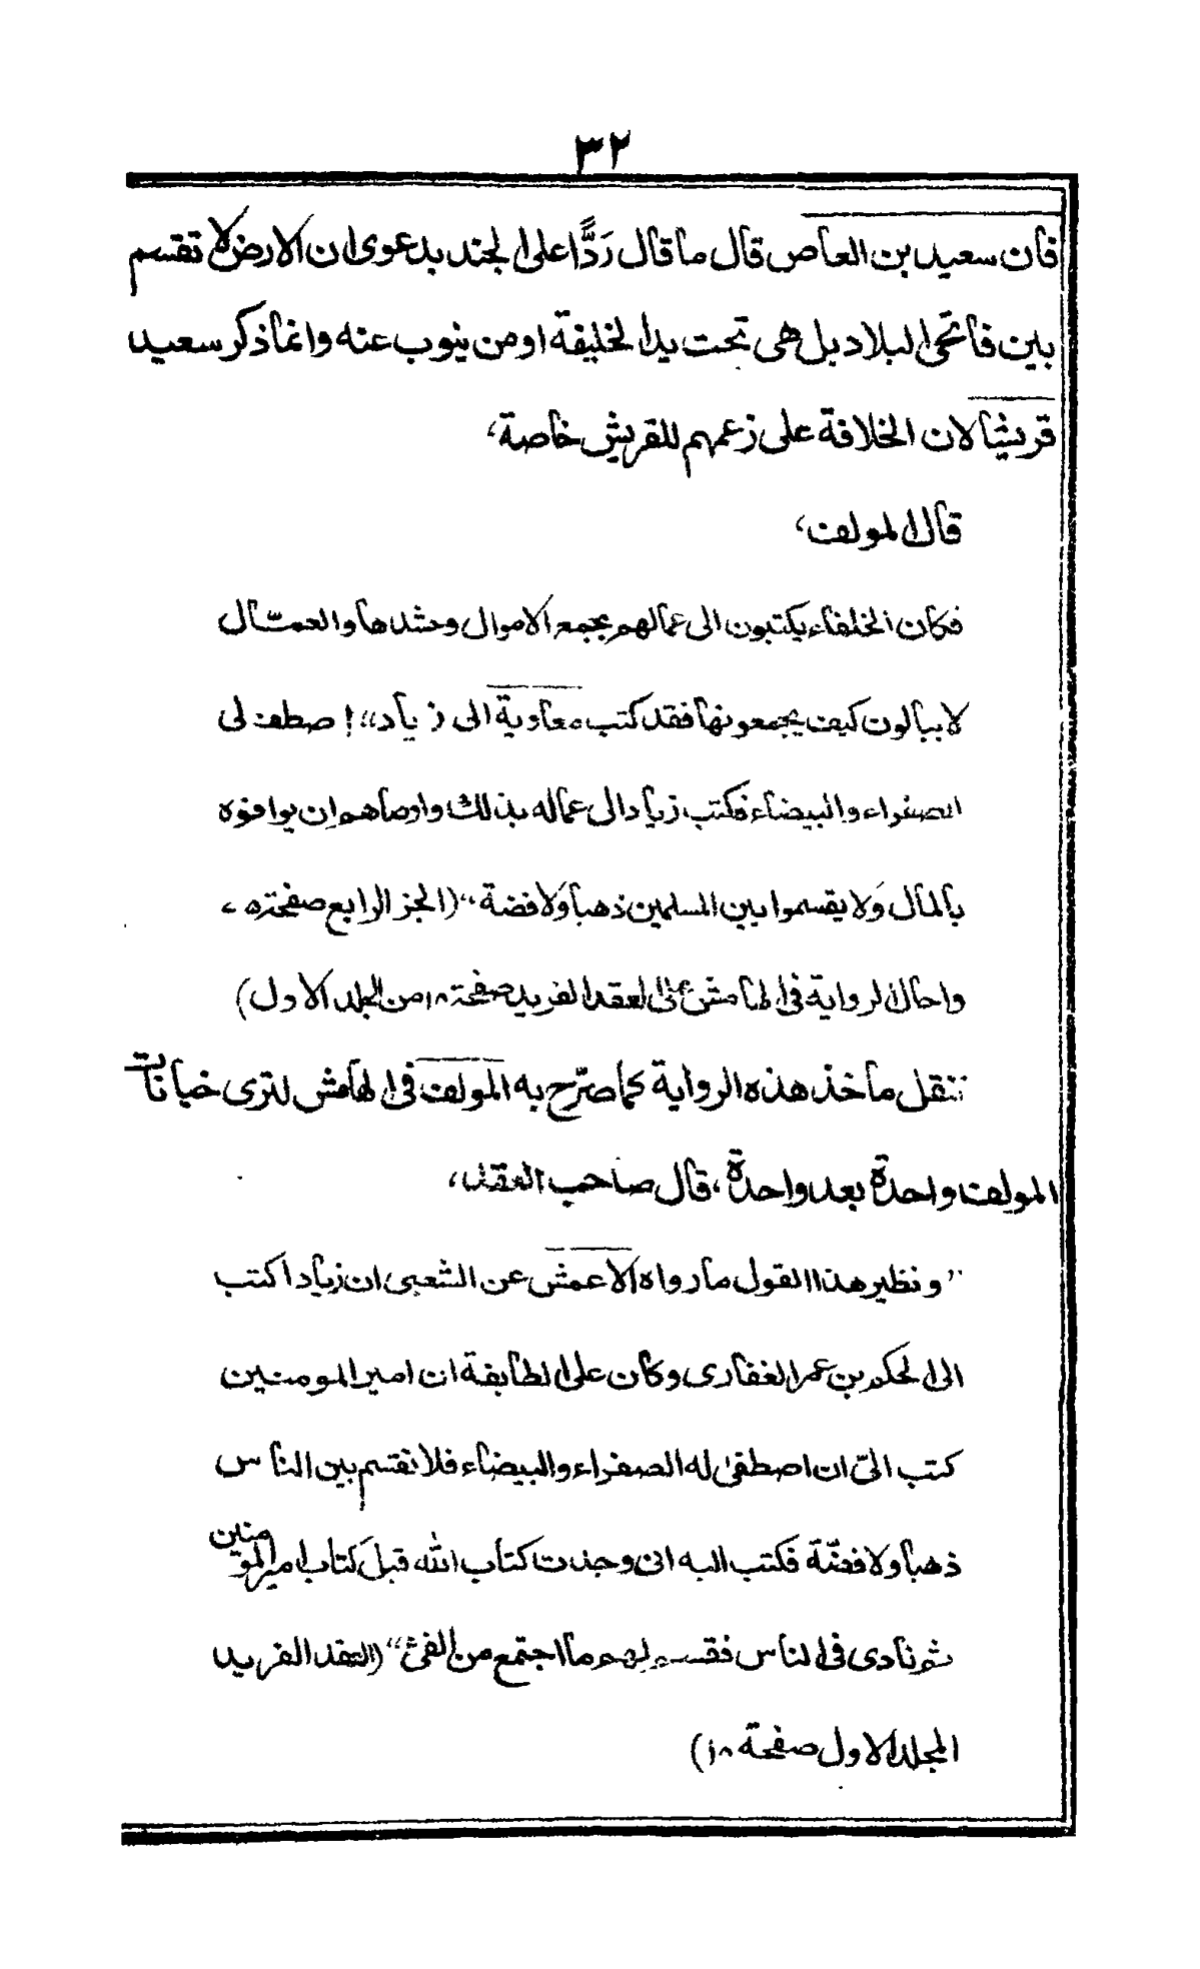 ٣٢
فان سعيد بن العاص قال ما قال رَدًّا على الجند بدعوى ان الارض لا تقسم
بين فاتحى البلاد بل هى تحت يد الخليفة او من ينوب عنه وانما ذكر سعيد
قريشا لان الخلافة على زعمهم للقريش خاصة،
قال المولف،
فكان الخلفاء يكتبون الى عمالهم بجمع الاموال وحشدها والعمّال
لا يبالون كيف يجمعونها فقد كتب معاوية الى زياد "اصطف لى
الصفراء والبيضاء فكتب زياد الى عماله بذلك واوصاهم ان يوافوه
بالمال وَلا يقسموا بين المسلمين ذهبا وَلا فضة" (الجز الرابع صفحة
واحال الرواية فى الهامش على العقد الفريد صفحة ١٨ من الجلد الاول)
ننقل ماخذ هذه الرواية كما صرّح به المولف فى الهامش لترى خيانات
المولف واحدة بعد واحدة، قال صاحب العقد،
"ونظير هذا القول ما رواه الاعمش عن الشعبى ان زيادا كتب
الى الحكم بن عمر الغفارى وكان على الطايفة ان امير المومنين
كتب الىّ ان اصطفى له الصفراء والبيضاء فلا تقسم بين الناس
ذهبا ولا فضّة فكتب اليه انى وجدت كتاب الله قبلَ كتاب امير المومنين
ثم نادى فى الناس فقسم لهم ما اجتمع من الفئ" (العقد الفريد
المجلد الاول صفحة ١٨)